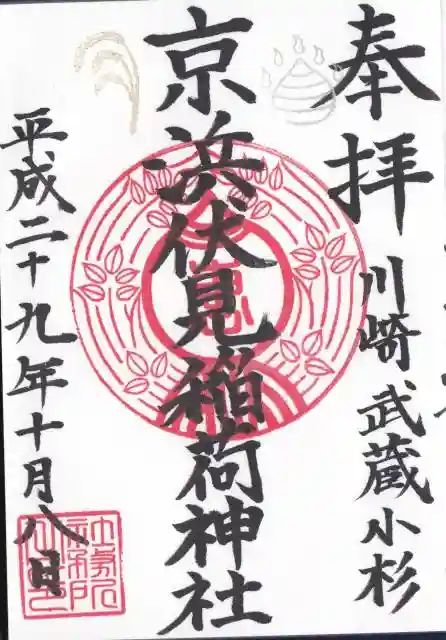 奉拝
川崎武蔵小杉
京浜伏見稲荷神社
平成二十九年十月八日